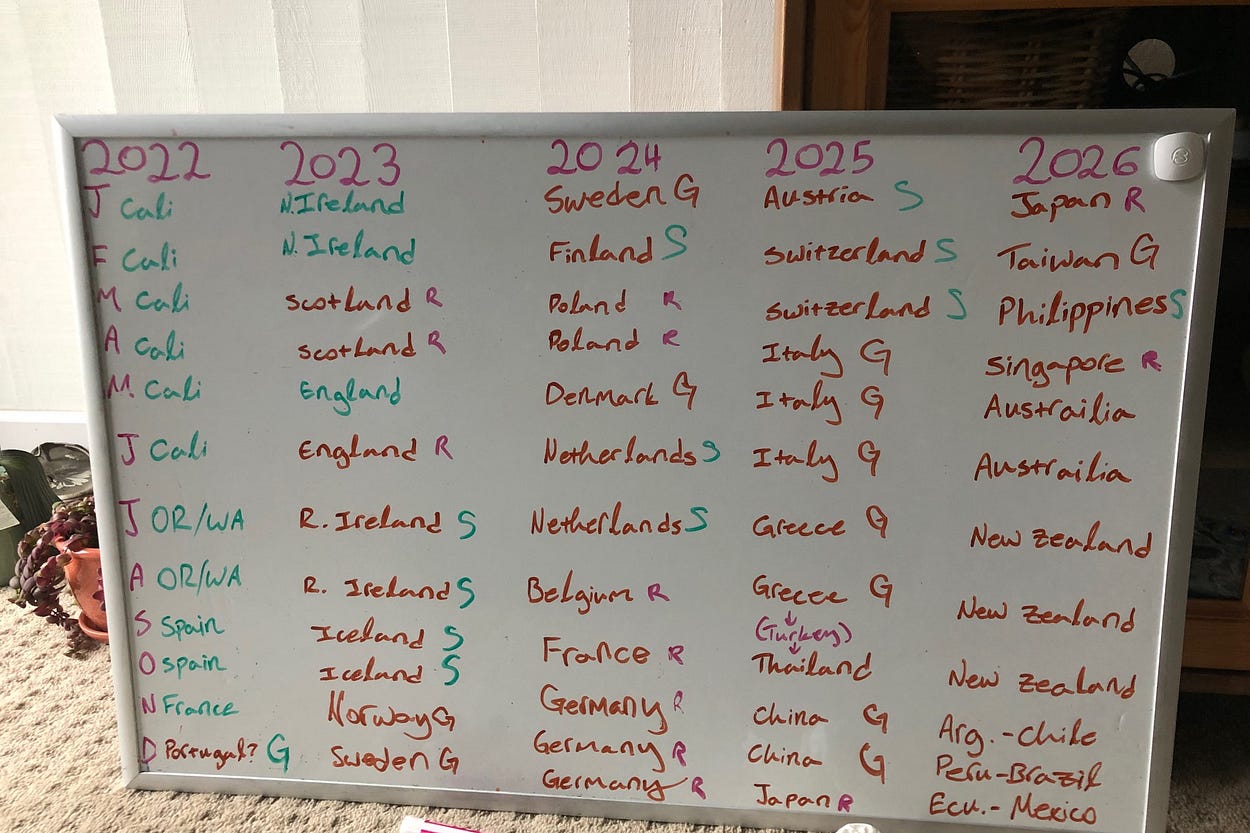 2022 2023 2024 2025 2026
J Cali N.Ireland Sweden G Austria S Japan R
F Cali N.Ireland Finland S Switzerland S Taiwan G
M Cali Scotland R Poland R Switzerland S Philippines S
A Cali Scotland R Poland R Italy G Singapore R
M Cali England Denmark G Italy G Austrailia
J Cali England R Netherlands S Italy G Austrailia
J OR/WA R. Ireland S Netherlands S Greece G New Zealand
A OR/WA R. Ireland S Belgium R Greece G New Zealand
(Turkey)
S Spain Iceland S France R Thailand New Zealand
O Spain Iceland S Germany R China G Arg.-Chile
N France Norway G Germany R China G Peru-Brazil
D Portugal? G Sweden G Germany R Japan R Ecu.-Mexico